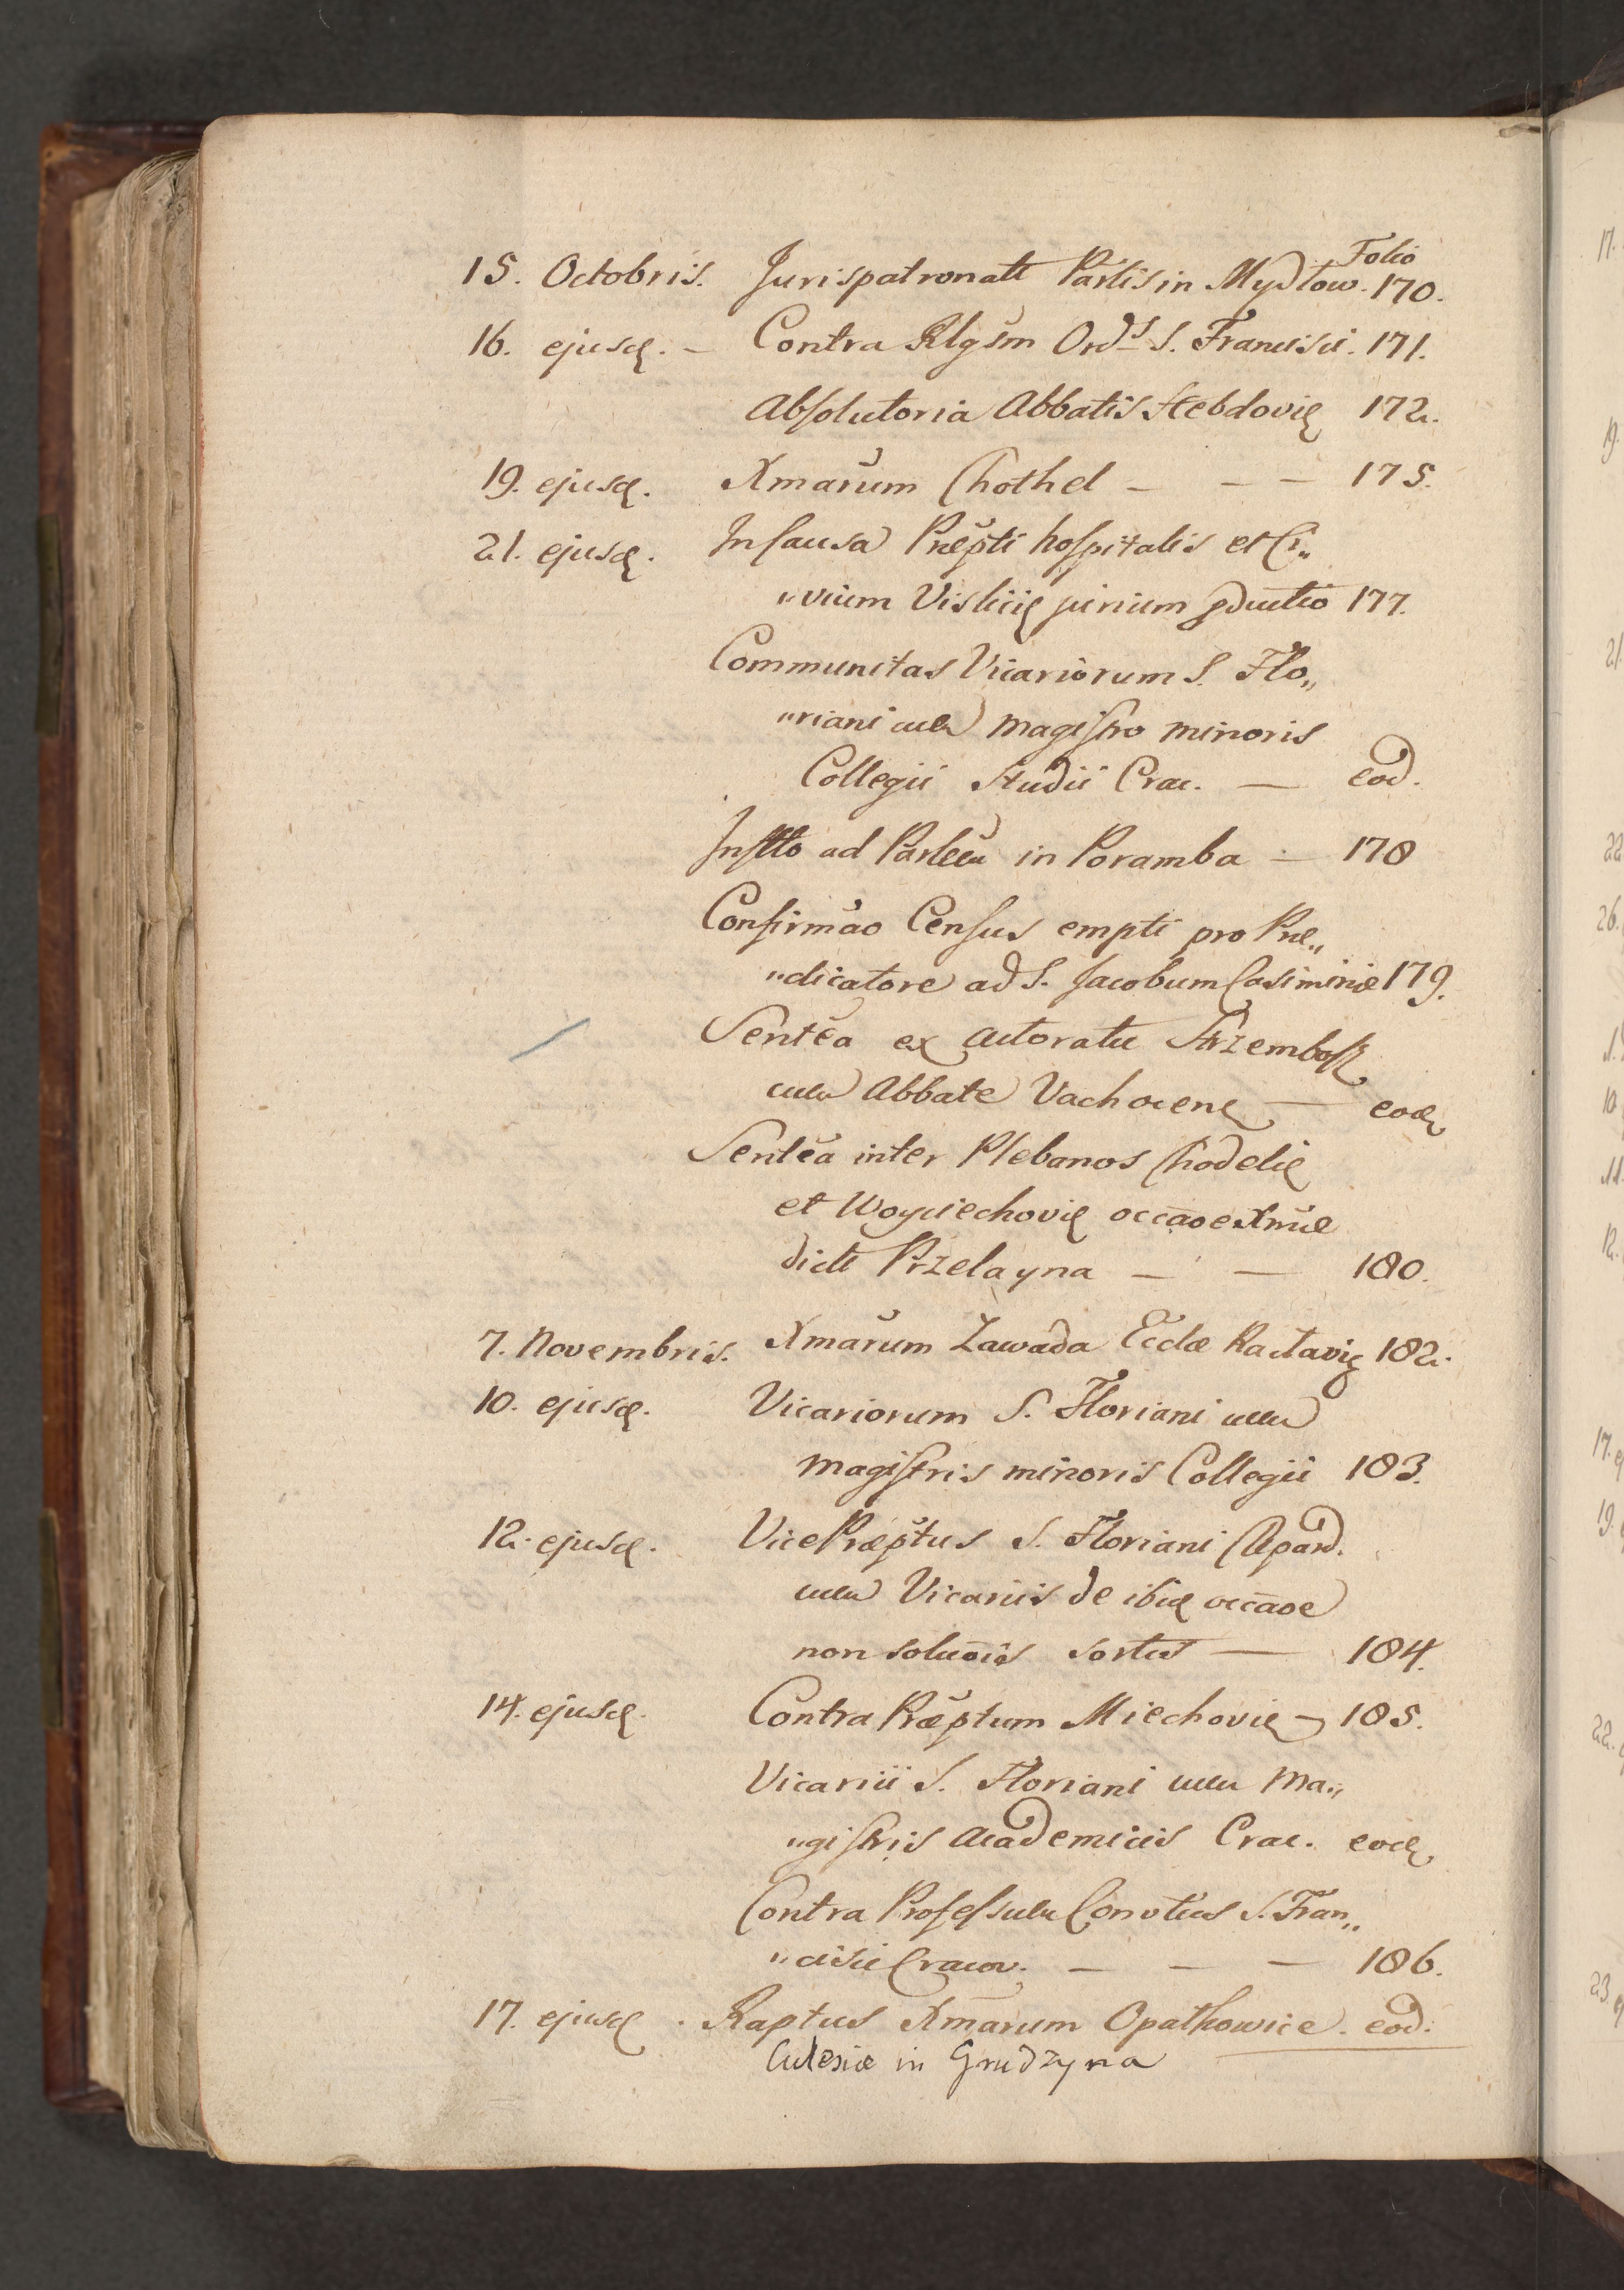 Folio
15. Octobris. Jurispatronatt Partis in Mydłow. 170.
16. ejusd. – Contra Rlgsm Ord. S. Francisci. 171.
Absolutoria Abbatis Hebdovie 172.
19. ejusd. Xmarum Chothel – – – 175.
21. ejusd. In Causa Præpti hospitalis et Ci„
„vium Vislicie jurium pductio 177.
Communitas Vicariorum S. Flo„
„riani cum magistro minoris
Collegii Studii Crac. – eod.
Instto ad Parlem in Poramba – 178
Confirmao Census empti pro Præ„
„dicatore ad S. Jacobum Casimiriæ 179.
Sentea ex actoratu Strzembosz
cum Abbate Vachocene – eod
Sentea inter Plebanos Chodelie
et Woyciechovie occaoe Xmæ
dicte Przelayna – – 180.
7. Novembris. Xmarum Zawada Ecclæ Raclavie 182.
10. ejusd. Vicariorum S. Floriani cum
magistris minoris Collegii 183.
12. ejusd. Vice Præptus S. Floriani Clepard.
cum Vicariis de ibid occaoe
non soluois sortis – 184.
14. ejusd. Contra Præptum Miechovie – 185.
Vicarii S. Floriani cum Ma„
„gistris Academicis Crac. eod
Contra Professum Convtus S. Fran„
„cisci Cracov. – – – 186.
17. ejusd. Raptus Xmarum Opathowice. eod.
Eclesiæ in Grudzyna